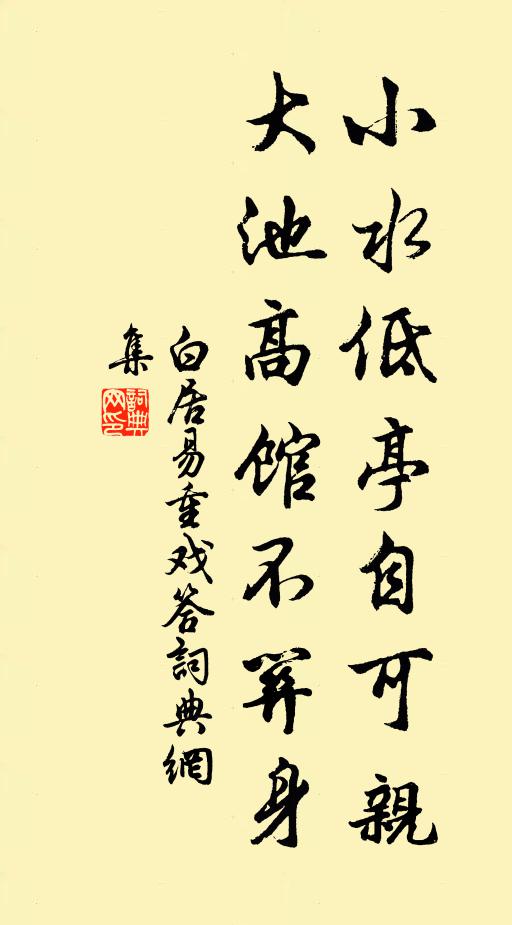 小水低亭自可親
大池高館不關身
白居易重戏答詞典網
集
詞典
网印